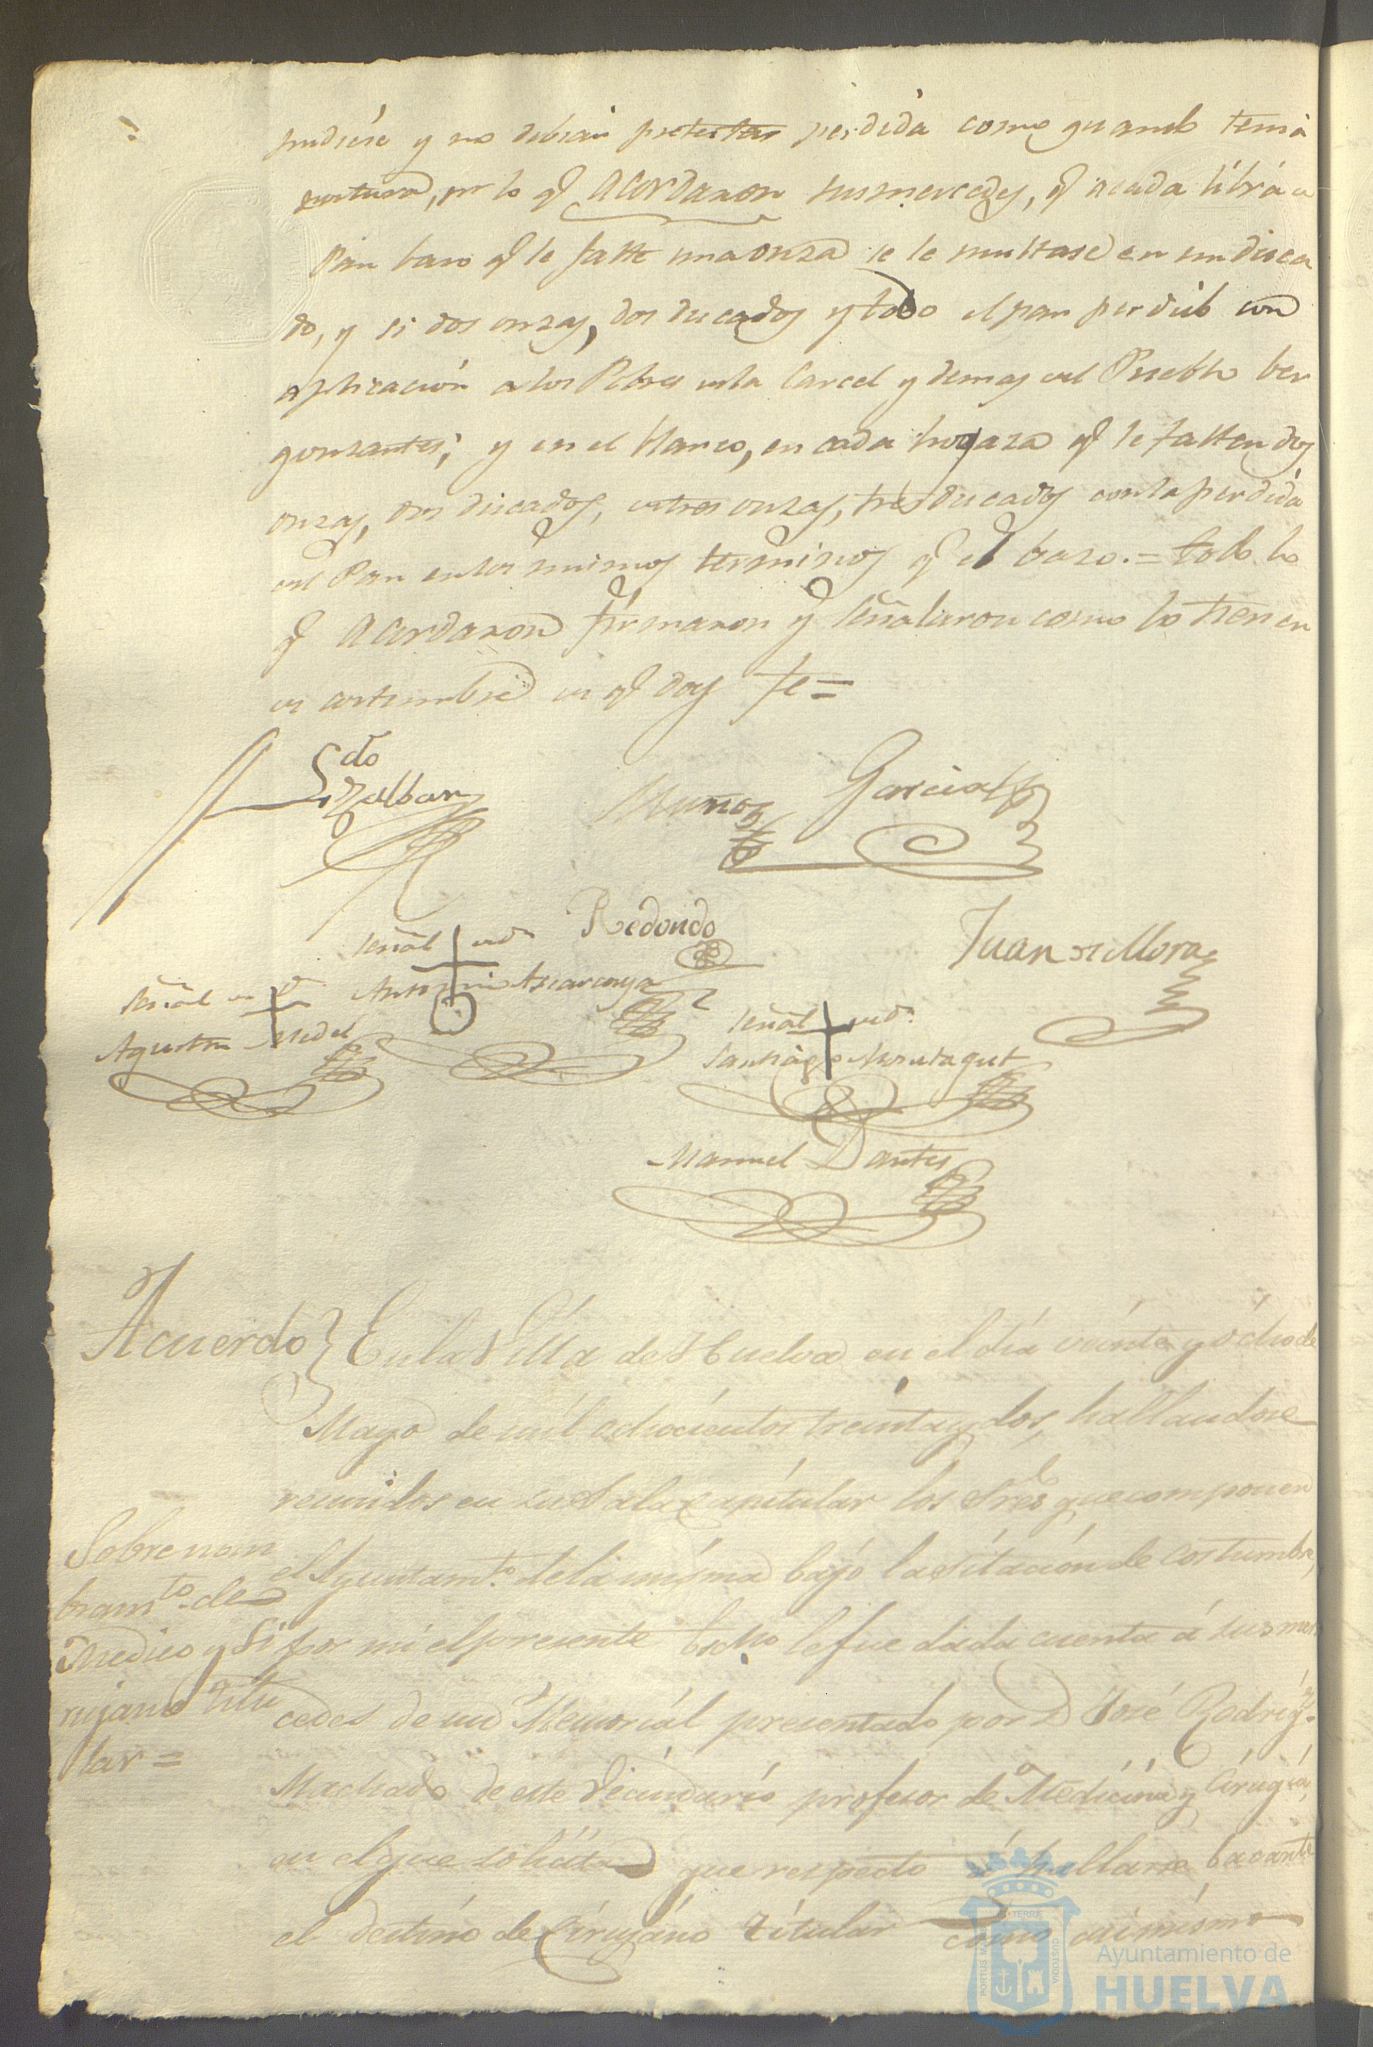 pudiese y no debian pretestar perdida como quando tenia
postura, pr lo qe acordaron sus mercedes, qe acada libra de
Pan bazo qe le falte una onza se le multase en un duca
do, y si dos onzas, dos ducados y todo el pan perdido con
aplicacion a los Pobres en la Carcel y demas del Pueblo ber
gonzantes; y en el blanco, en cada hogaza qe le falten dos
onzas, dos ducados, en tres onzas, tres ducados con la perdida
del Pan en los mismos terminos qe el bazo. = todo lo
qe acordaron firmaron y señalaron como lo tienen
de costumbre de qe doy fe =
Muñoz Garcia
Redondo
Juan de Mora
señal de Dn
señal de Dn
señal de Dn
Agustin Medel
Antonio
Santiago
Manuel Dantes
Acuerdo } En la Villa de Huelva en el dia veinte y ocho de
Mayo de mil ochocientos treinta y dos, hallandose
reunidos en su Sala capitular los Sres que componen
el Ayuntamto. de la misma bajo la sitacion de costumbre,
por mi el presente Escno. le fue dada cuenta á sus mer
cedes de un Memorial presentado por Dn José Rodrigz.
Machado de este Vecindario profesor de Medicina y Cirugia,
en el que solicita que respecto á hallarse bacante
el destino de Cirujano Titular como asimismo
Sobre nom
bramto. de
Medico y Ci
rujano titu
lar =
PORTUS MARIS
TERRE
CUSTODIA
Ayuntamiento de
HUELVA